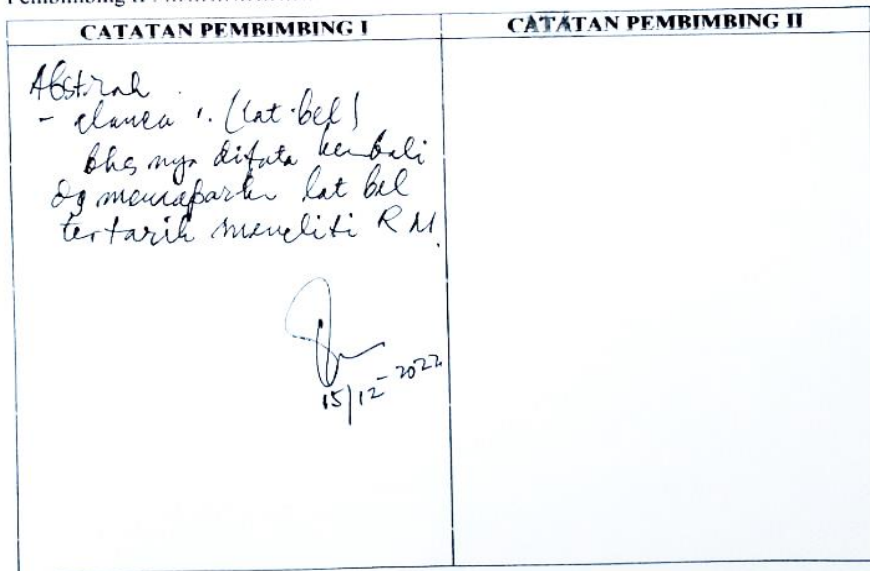 Pembimbing II : ....................
CATATAN PEMBIMBING I
CATATAN PEMBIMBING II
Abstrak
- alinea 1. (lat.bel)
bhs nya ditata kembali
dg memaparkan lat bel
tertarik meneliti RM.
15/12-2022